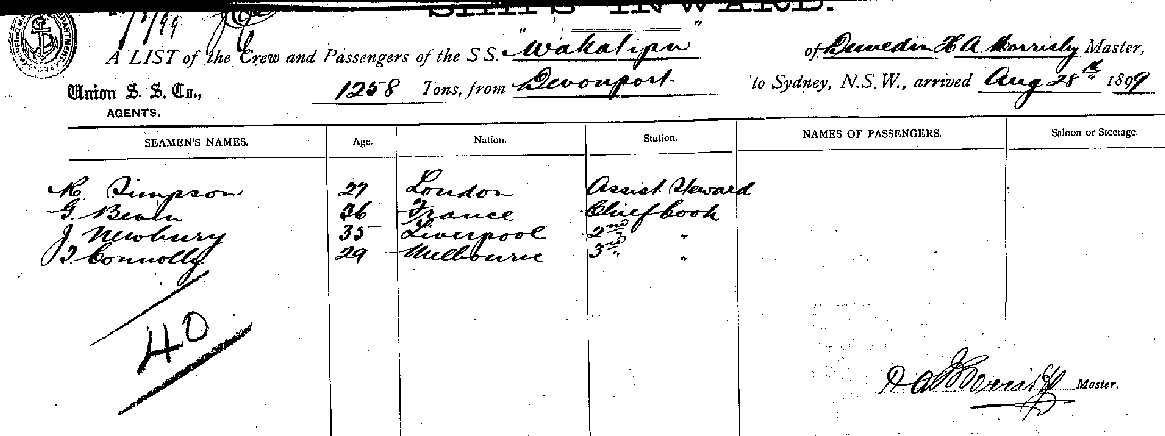 SHIPS INWARD.
A LIST of the Crew and Passengers of the S S. "Wakatipu" of Dunedin H A Morrisby Master,
Union S. S. Co., 1258 Tons, from Devonport to Sydney, N.S.W., arrived Aug 28th 1899
AGENTS.
SEAMEN'S NAMES. Age. Nation. Station. NAMES OF PASSENGERS. Saloon or Steerage.
Simpson 27 London Assist Steward
G. 36 France Chief Cook
J. Newbury 35 Liverpool 2nd "
Connolly 29 Melbourne 3rd " "
40
Master.